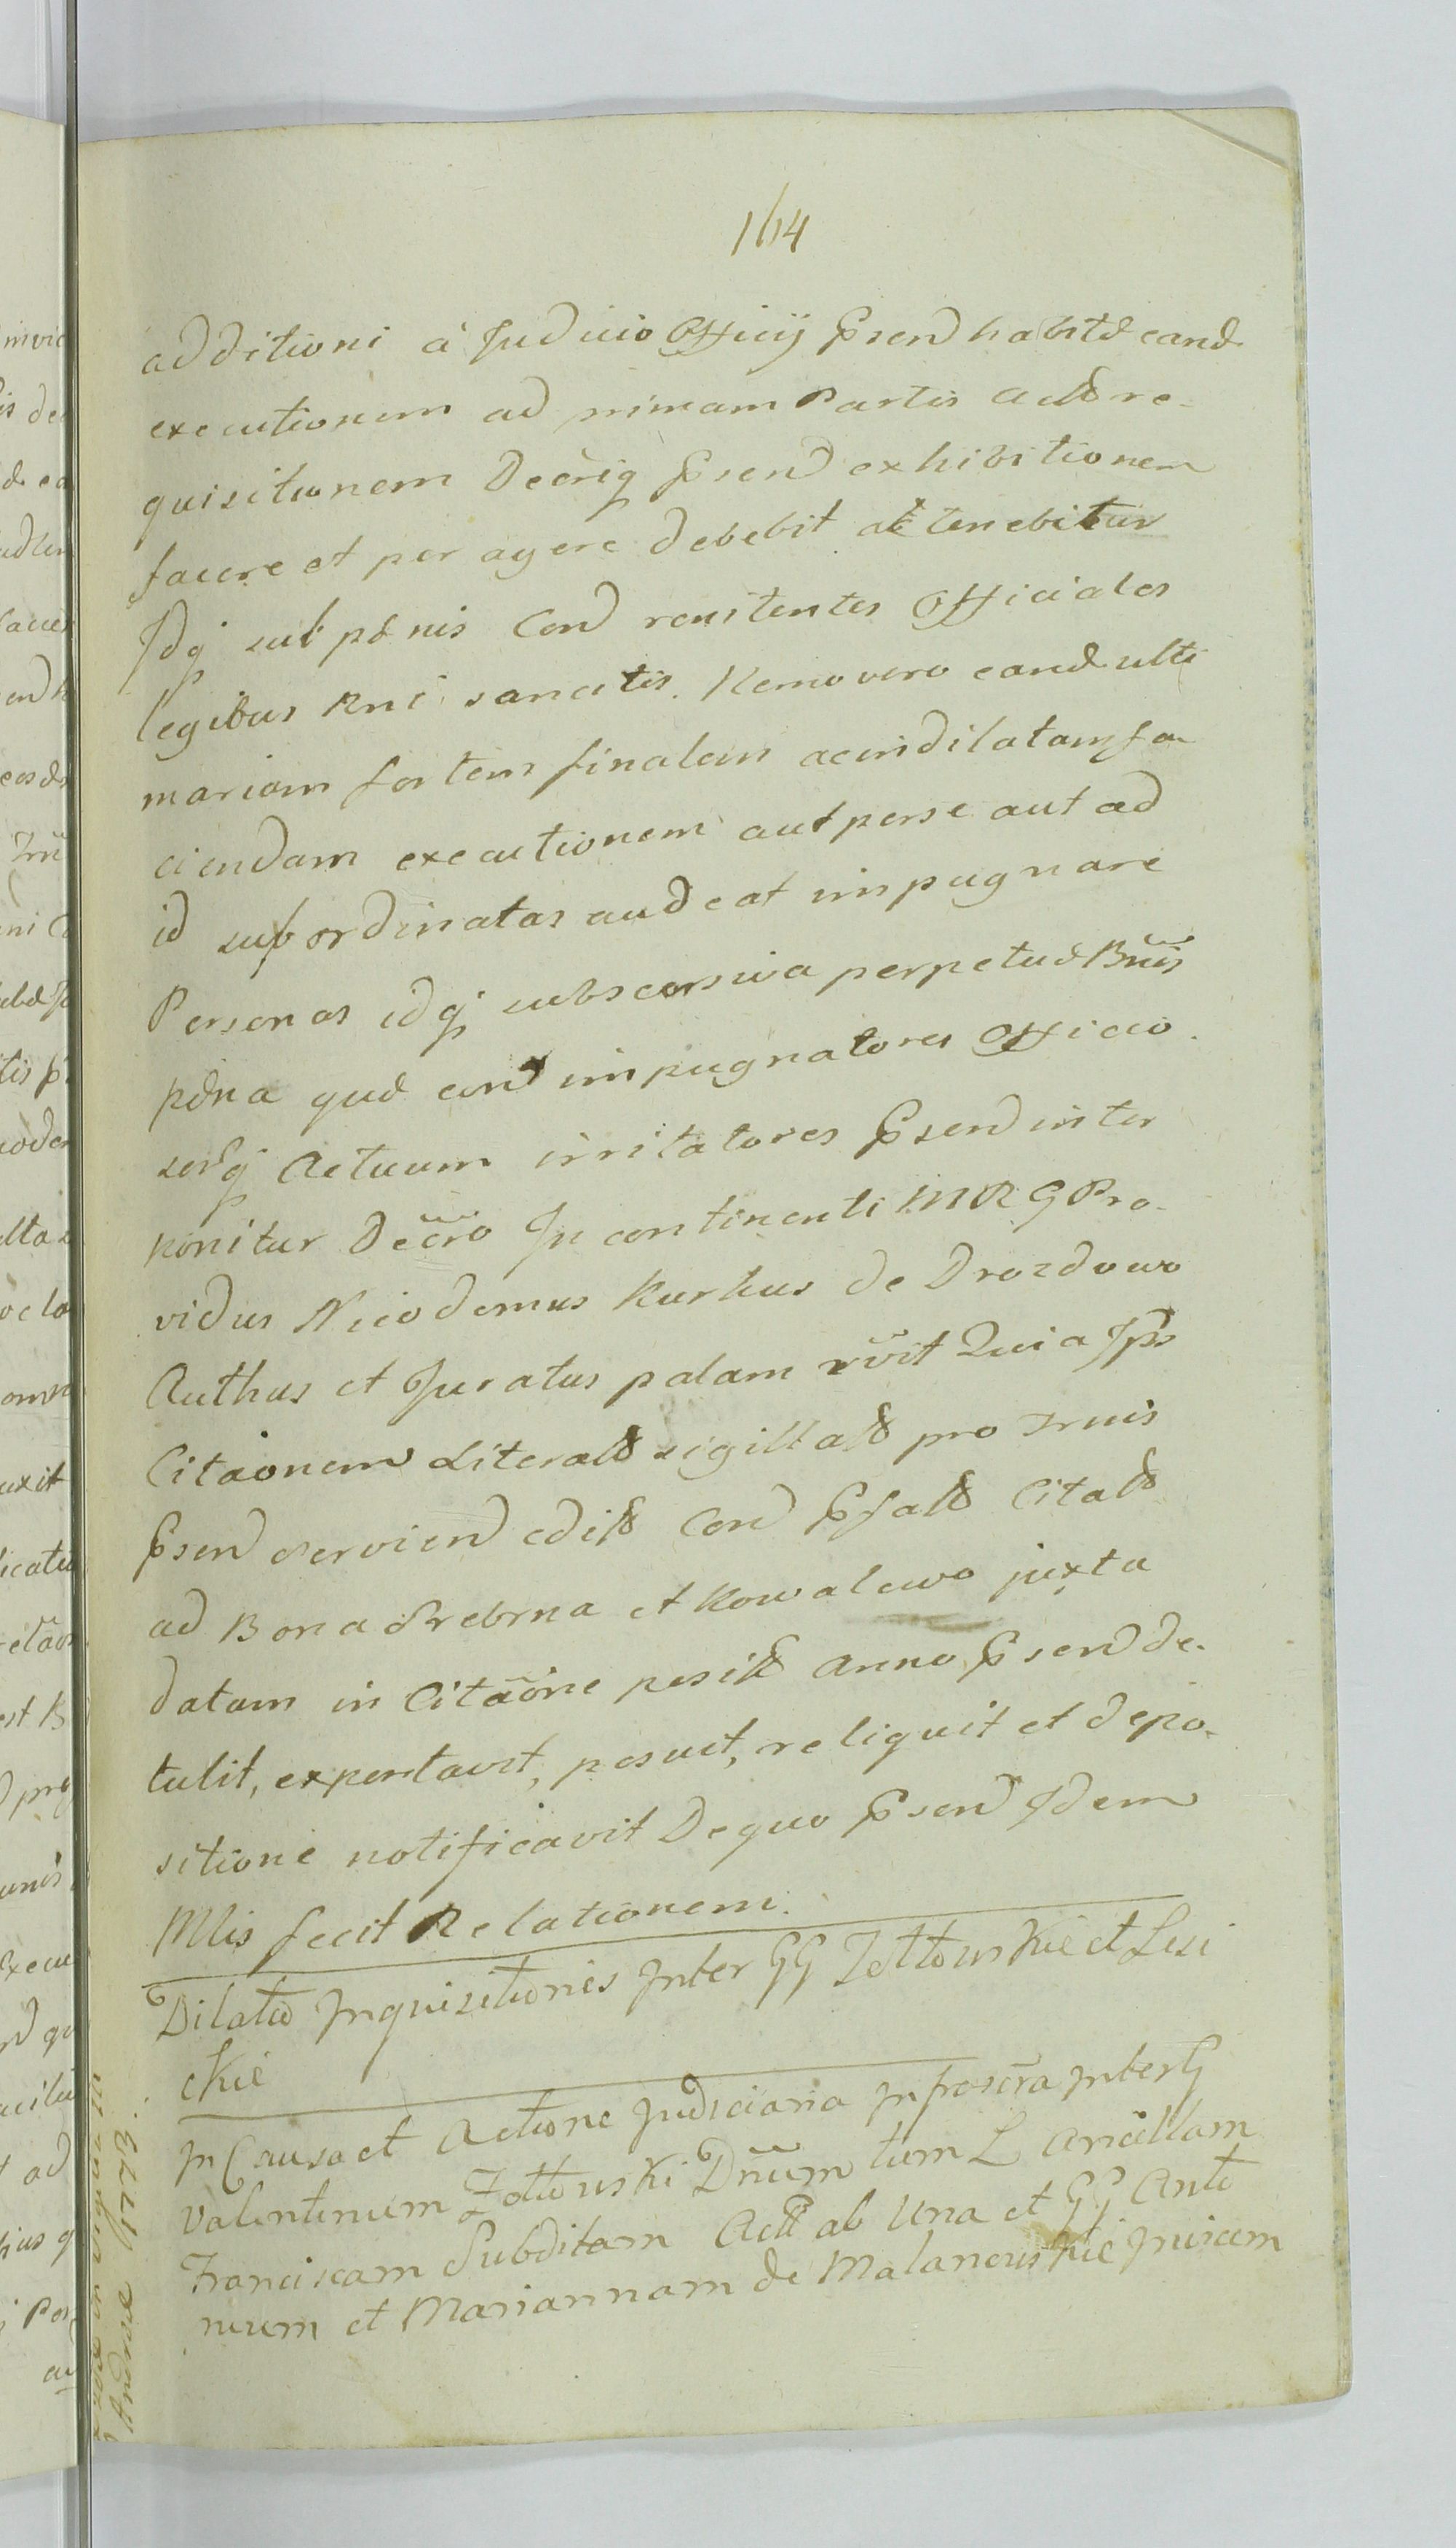 164
additioni à Judicio Officij Psend habitæ eand
executionem ad primam Partis Act re-
quisitionem Decriq Psend exhibitionem
facere et per agere debebit ac tenebitur
Idq sub pænis Con renitentes Officiales
legibus Rni sancitis. Nemo vero eand ulti
mariam fortem finalem ac indilatam fa
ciendam executionem aut per se aut ad
id subordinatas audeat impugnare
Personas idq sub scarsiva perpetuæ Bnis
pæna quæ con impugnatores Officio
rumq Actuum irritatores Psend inter
ponitur Decro In continenti MRG Pro-
vidus Nicodemus Kurkus de Drozdowo
Authus et Juratus palam rvit Quia Ips
Citaonem Literal sigillat pro Trnis
Psend servien edit Con Psat Citat
ad Bona Srebrna et Kowalewo juxta
datam in Citaone posit Anno Psend de-
tulit, exportavit, posuit, reliquit et depo-
sitione notificavit De quo Psend Idem
Mlis fecit Relationem.
Dilatio Inquisitionis Inter GG Zottowskie et Lesi
ckie
In Causa et Actione Judiciaria Infrascra Inter G
Valentinum Zottowski Dnum tum L Ancillam
Franciscam Subditam Act ab Una et GG Anto
nium et Mariannam de Malanowskie Invicem